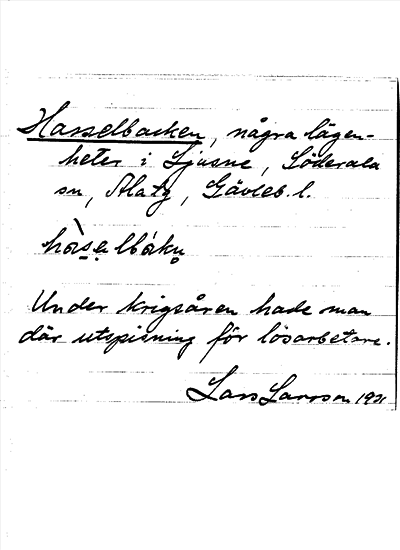 Hasselbacken, några lägen-
heter i Ljusne, Söderala
sn, Ala tg, Gävleb. l.
Under krigsåren hade man
där utspisning för lösarbetare.
Lars Larsson 1921